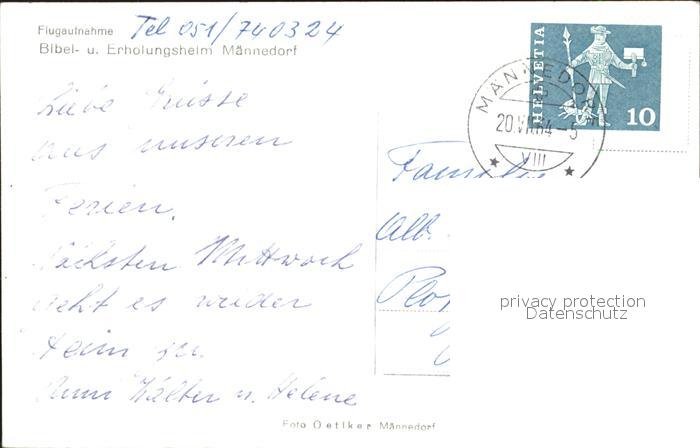 Flugaufnahme Tel 051/740324
Bibel- u. Erholungsheim Männedorf
HELVETIA
10
MÄNNEDORF
20.VII.64-5
VIII
Liebe Grüsse
aus unseren
Ferien.
Nächsten Mittwoch
geht es wieder
Heim zu.
Walter u. Helene
Familie
Alb.
privacy protection
Datenschutz
Foto Oetiker Männedorf